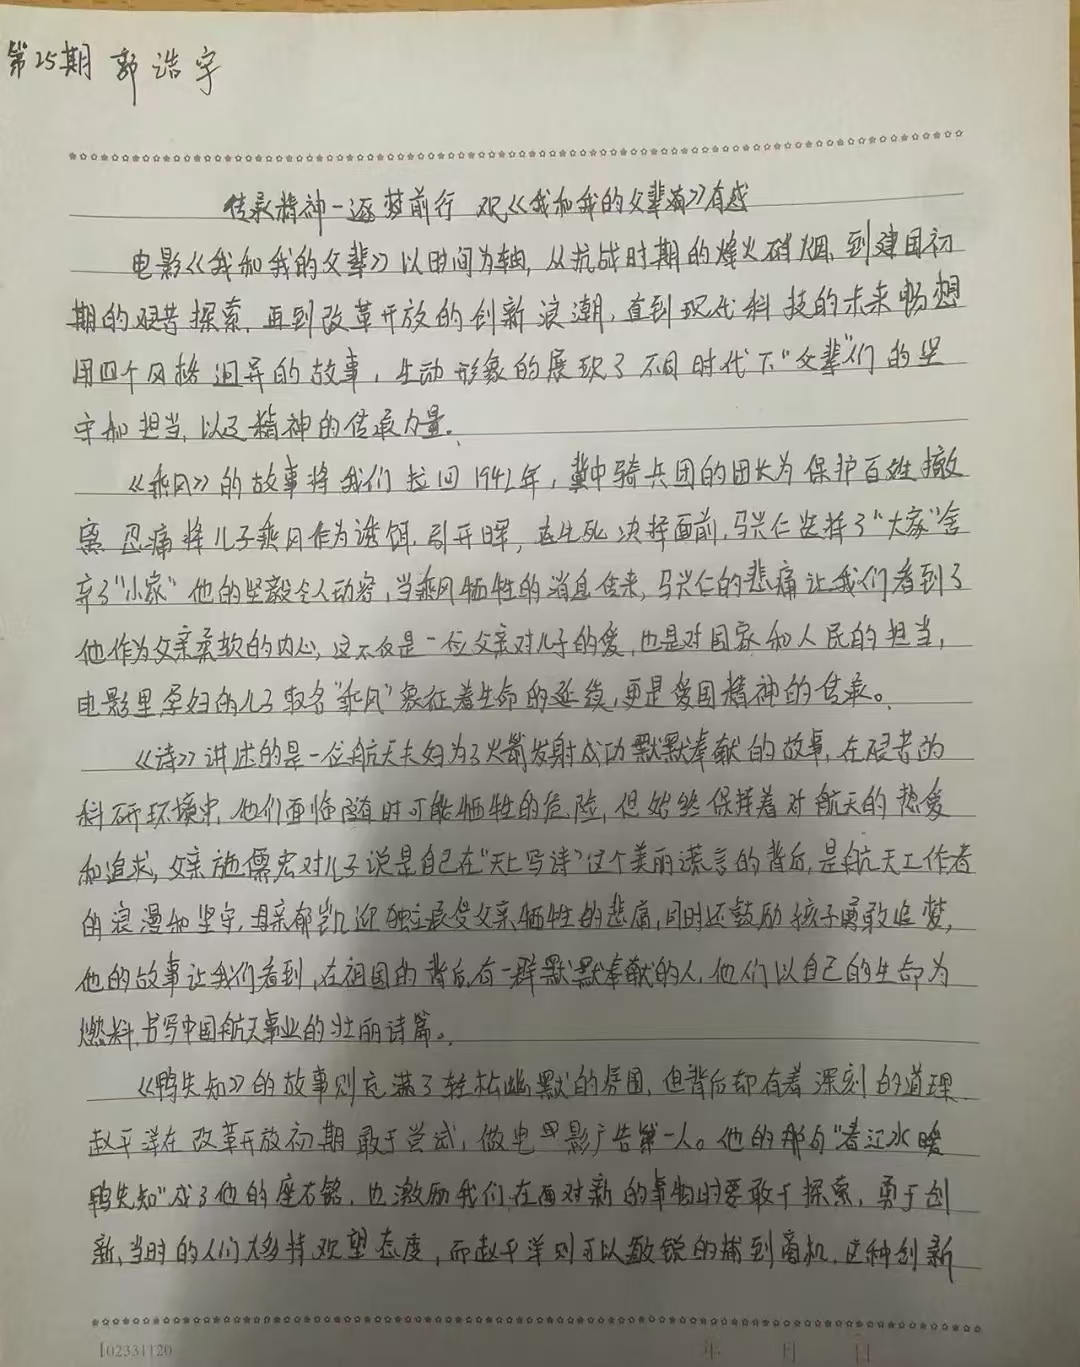 第25期 郭浩宇
传承精神-逐梦前行 观《我和我的父辈》有感
电影《我和我的父辈》以时间为轴,从抗战时期的烽火硝烟,到建国初
期的艰苦探索,再到改革开放的创新浪潮,直到现代科技的未来畅想
用四个风格迥异的故事,生动形象的展现了不同时代下“父辈”们的坚
守和担当,以及精神的传承力量。
《乘风》的故事将我们拉回1942年,冀中骑兵团的团长为保护百姓撤
离忍痛将儿子乘风作为诱饵,引开日军,在生死决择面前,马兴仁选择了“大家”舍
弃了“小家”他的坚毅令人动容,当乘风牺牲的消息传来,马兴仁的悲痛让我们看到了
他作为父亲柔软的内心,这不仅是一位父亲对儿子的爱,也是对国家和人民的担当,
电影里孕妇的儿子取名“乘风”象征着生命的延续,更是爱国精神的传承。
《诗》讲述的是一位航天夫妇为了火箭发射成功默默奉献的故事,在艰苦的
科研环境中,他们面临随时可能牺牲的危险,但始终保持着对航天的热爱
和追求,父亲施儒宏对儿子说是自己在“天上写诗”这个美丽谎言的背后,是航天工作者
的浪漫和坚守,母亲郁凯迎独立承受父亲牺牲的悲痛,同时还鼓励孩子勇敢追梦,
他的故事让我们看到,在祖国的背后,有一群默默奉献的人,他们以自己的生命为
燃料,书写中国航天事业的壮丽诗篇。
《鸭先知》的故事则充满了轻松幽默的氛围,但背后却有着深刻的道理
赵平洋在改革开放初期敢于尝试,做电影广告第一人。他的那句“春江水暖
鸭先知”成了他的座右铭,也激励我们在面对新的事物时要敢于探索,勇于创
新,当时的人们大多持观望态度,而赵平洋则可以敏锐的捕到商机,这种创新
102331120 年 月 日